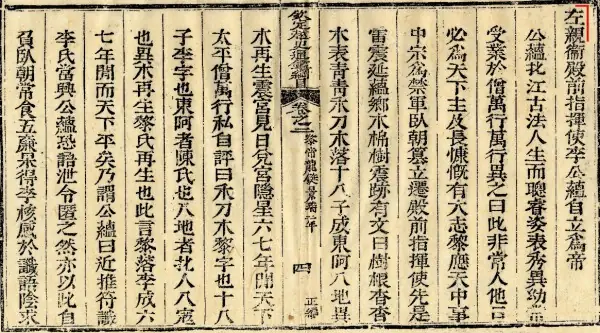 左親衛殿前指揮使李公蘊自立爲帝
公蘊北江古法人生而聰睿姿表秀異幼年
受業於僧萬行異之曰此非常人他日
必爲天下主及長慷慨有大志黎應天中事
中宗爲禁軍臥朝纂立遷殿前指揮使先是
雷震延蘊鄕木棉樹震跡有文曰樹根杳杳
木表靑靑禾刀木落十八子成東阿入地異
欽定越史通鑑綱目 卷之二 黎帝龍鋌景瑞二年 四 正編
木再生震宮見日兌宮隱星六七年閒天下
太平僧萬行私自評曰禾刀木黎字也十八
子李字也東阿者陳氏也入地者北人入寇
也異木再生黎氏再生也此言黎落李成六
七年閒而天下平矣乃謂公蘊曰近推符讖
李氏當興公蘊恐語泄令匿之然亦以此自
負臥朝常食五廉果得李核感於讖語陰求